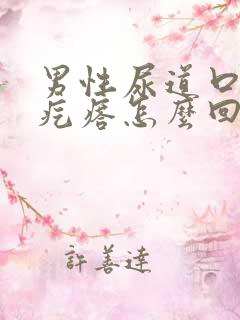 男性尿道口
疙瘩怎麼回
許善達